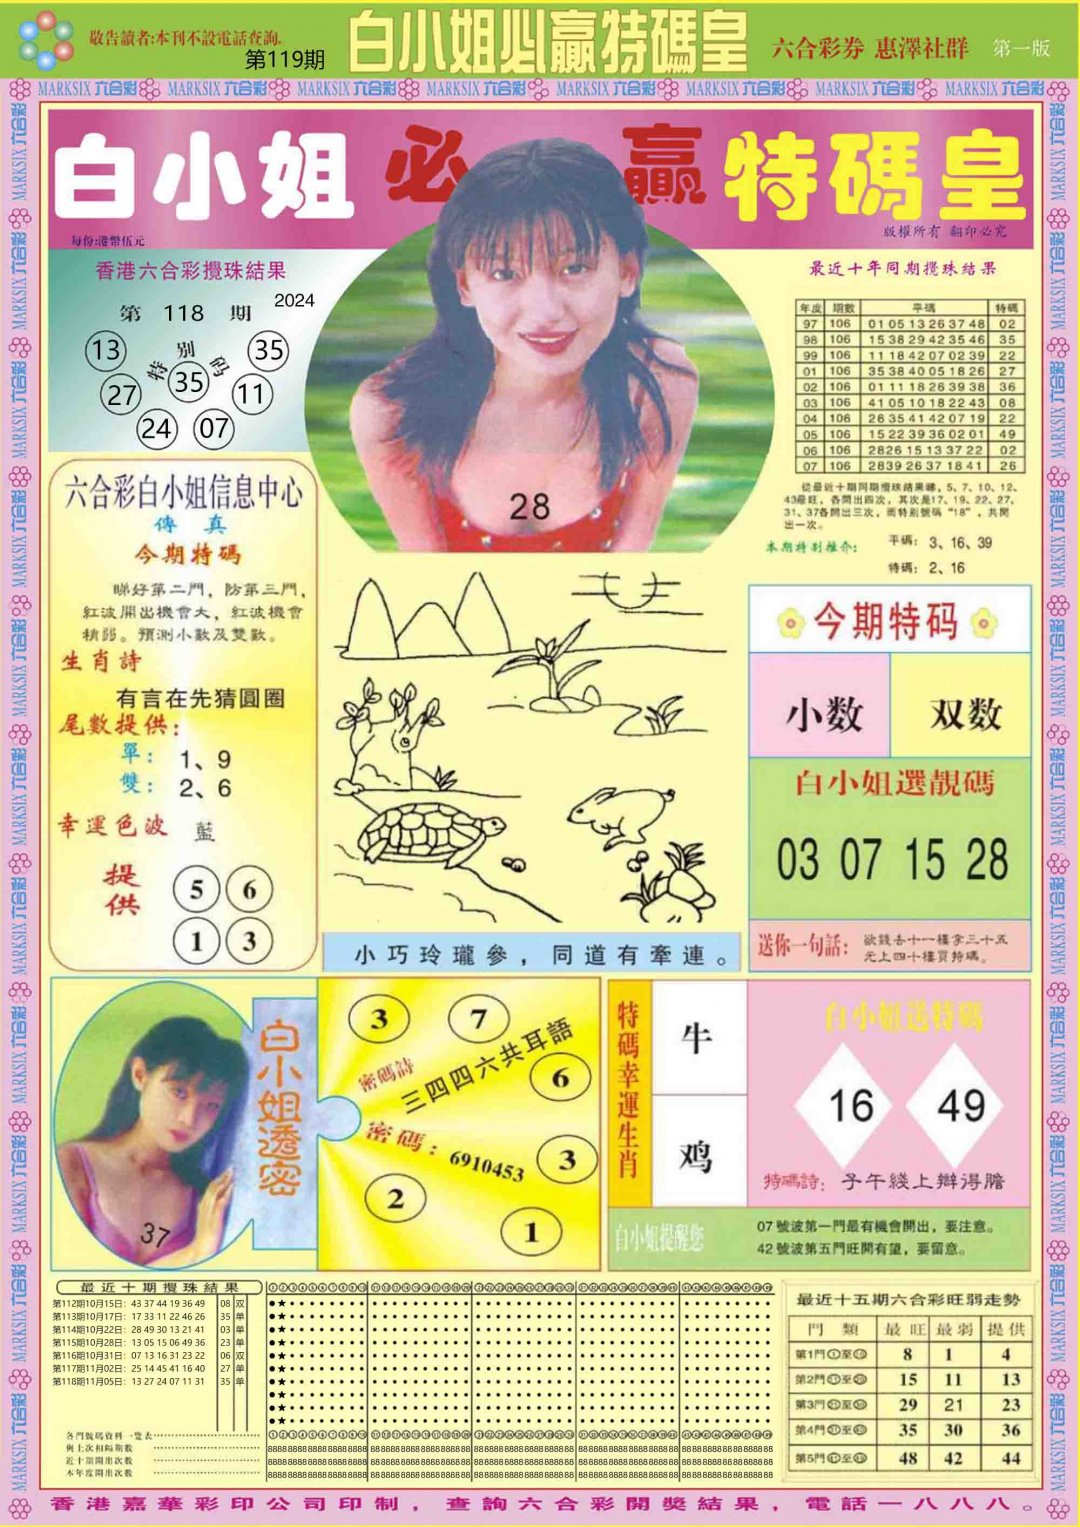 敬告讀者:本刊不設電話查詢.
第119期
白小姐必贏特碼皇
六合彩券 惠澤社群
第一版
MARKSIX 六合彩 MARKSIX 六合彩 MARKSIX 六合彩 MARKSIX 六合彩 MARKSIX 六合彩 MARKSIX 六合彩 MARKSIX 六合彩 MARKSIX 六合彩
白小姐 必贏 特碼皇
每份:港幣伍元
版權所有 翻印必究
香港六合彩攪珠結果
2024
第 118 期
13 特别码 35
27 35 11
24 07
28
最近十年同期攪珠結果
年度 期數 平碼 特碼
97 106 01 05 13 26 37 48 02
98 106 15 38 29 42 35 46 35
99 106 11 18 42 07 02 39 22
01 106 35 38 40 05 18 26 27
02 106 01 11 18 26 39 38 36
03 106 41 05 10 18 22 43 08
04 106 26 35 41 42 07 19 22
05 106 15 22 39 36 02 01 49
06 106 28 26 15 13 37 22 02
07 106 28 39 26 37 18 41 26
從最近十期同期攪珠結果睇，5、7、10、12、
43最旺，各開出四次，其次是17、19、22、27、
31、37各開出三次，而特别號碼“18”，共開
出一次。
本期特别推介： 平碼：3、16、39
特碼：2、16
六合彩白小姐信息中心
傳 真
今期特碼
睇好第二門，防第三門，
紅波開出機會大，紅波機會
稍弱。預測小數及雙數。
生肖詩
有言在先猜圓圈
尾數提供：
單： 1、9
雙： 2、6
幸運色波 藍
提供
5 6
1 3
小巧玲瓏參，同道有牽連。
今期特码
小数 双数
白小姐選靚碼
03 07 15 28
送你一句話：
欲錢去十一樓拿三十五
元上四十樓買特碼。
白小姐透密
37
3 7
密碼詩
三四四六共耳語
6
密碼：6910453
3
2
1
特碼幸運生肖
牛
鸡
白小姐送特碼
16 49
特碼詩：子午綫上辦得膽
白小姐提醒您
07號波第一門最有機會開出，要注意。
42號波第五門旺開有望，要留意。
最近十期攪珠結果
第112期10月15日：43 37 44 19 36 49 08 双
第113期10月17日：17 33 11 22 46 26 35 单
第114期10月22日：28 49 30 13 21 41 03 单
第115期10月28日：13 05 15 06 49 36 23 单
第116期10月31日：07 13 16 31 23 22 06 双
第117期11月02日：25 14 45 41 16 40 27 单
第118期11月05日：13 27 24 07 11 31 35 单
各門號碼資料一覽表
與上次相隔期數
近十期開出次數
本年度開出次數
最近十五期六合彩旺弱走勢
門 類 最旺 最弱 提供
第1門①至⑩ 8 1 4
第2門⑪至⑳ 15 11 13
第3門㉑至㉚ 29 21 23
第4門㉛至㊵ 35 30 36
第5門㊶至㊾ 48 42 44
香港嘉華彩印公司印制，查詢六合彩開獎結果，電話一八八八。